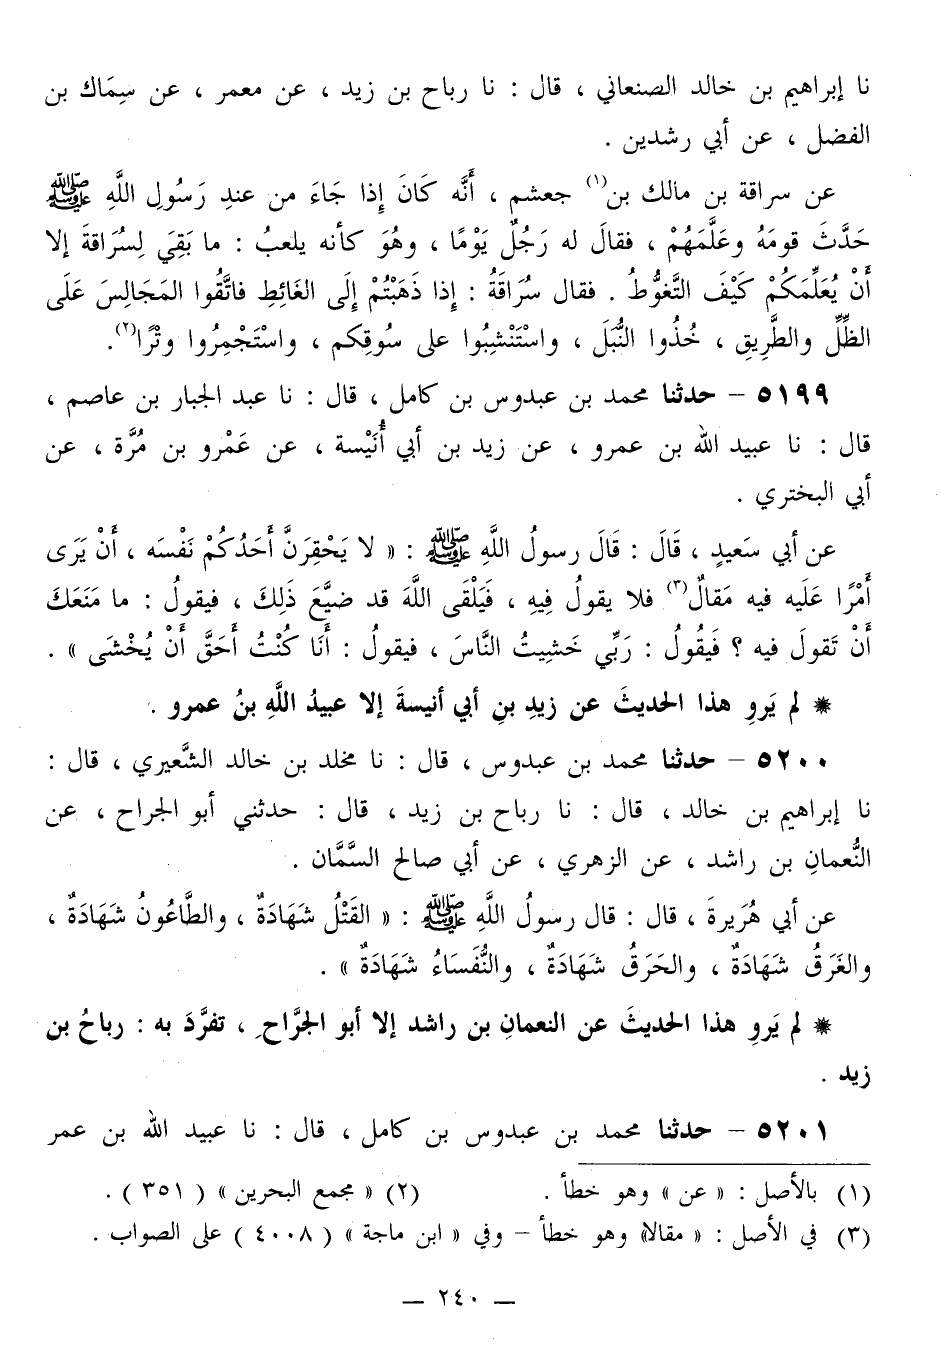 نا إبراهيم بن خالد الصنعاني ، قال : نا رباح بن زيد ، عن معمر ، عن سِمَاك بن
الفضل ، عن أبي رشدين .
عن سراقة بن مالك بن(١) جعشم ، أَنَّه كَانَ إِذا جَاءَ من عندِ رَسُولِ اللَّهِ ﷺ
حَدَّثَ قومَهُ وعَلَّمَهُمْ ، فقالَ له رَجُلٌ يَوْمًا ، وهُوَ كأنه يلعبُ : ما بَقِيَ لِسُرَاقةَ إلا
أَنْ يُعَلِّمَكُمْ كَيْفَ التَّغوُّطُ . فقال سُرَاقَةُ : إِذا ذَهَبْتُمْ إِلَى الغَائِطِ فاتَّقُوا المَجَالِسَ عَلَى
الظِّلِّ والطَّرِيقِ ، خُذُوا النُّبَلَ ، واسْتَنْشِبُوا على سُوقِكم ، واسْتَجْمِرُوا وتْرًا(٢).
٥١٩٩ – حدثنا محمد بن عبدوس بن كامل ، قال : نا عبد الجبار بن عاصم ،
قال : نا عبيد الله بن عمرو ، عن زيد بن أبي أُنَيْسة ، عن عَمْرو بن مُرَّة ، عن
أبي البختري .
عن أبي سَعيدٍ ، قَالَ : قَالَ رسولُ اللَّهِ ﷺ : « لا يَحْقِرَنَّ أَحَدُكُمْ نَفْسَه ، أَنْ يَرَى
أَمْرًا عَلَيه فيه مَقالٌ(٣) فلا يقولُ فِيهِ ، فَيَلْقَى اللَّهَ قد ضيَّعَ ذَلِكَ ، فيقولُ : ما مَنَعَكَ
أَنْ تَقولَ فيه ؟ فَيقُولُ : رَبِّي خَشِيتُ النَّاسَ ، فيقولُ : أَنَا كُنْتُ أَحَقَّ أَنْ يُخْشَى » .
* لم يَروِ هذا الحديثَ عن زيدِ بنِ أبي أنيسةَ إلا عبيدُ اللَّهِ بنُ عمرو .
٥٢٠٠ – حدثنا محمد بن عبدوس ، قال : نا مخلد بن خالد الشَّعيري ، قال :
نا إبراهيم بن خالد ، قال : نا رباح بن زيد ، قال : حدثني أبو الجراح ، عن
النُّعمانِ بن راشد ، عن الزهري ، عن أبي صالح السَّمَّان .
عن أبي هُرَيرةَ ، قال : قال رسولُ اللَّهِ ﷺ : « القَتْلُ شَهَادَةٌ ، والطَّاعُونُ شَهَادَةٌ ،
والغَرَقُ شَهَادَةٌ ، والحَرَقُ شَهَادَةٌ ، والنُّفَسَاءُ شَهَادَةٌ » .
* لم يَروِ هذا الحديثَ عن النعمانِ بن راشد إلا أبو الجَرَّاحِ ، تفرَّدَ به : رباحُ بن
زيد .
٥٢٠١ – حدثنا محمد بن عبدوس بن كامل ، قال : نا عبيد الله بن عمر
(١) بالأصل : « عن » وهو خطأ . (٢) « مجمع البحرين » ( ٣٥١ ) .
(٣) في الأصل : « مقالا » وهو خطأ – وفي « ابن ماجة » ( ٤٠٠٨ ) على الصواب .
— ٢٤٠ —